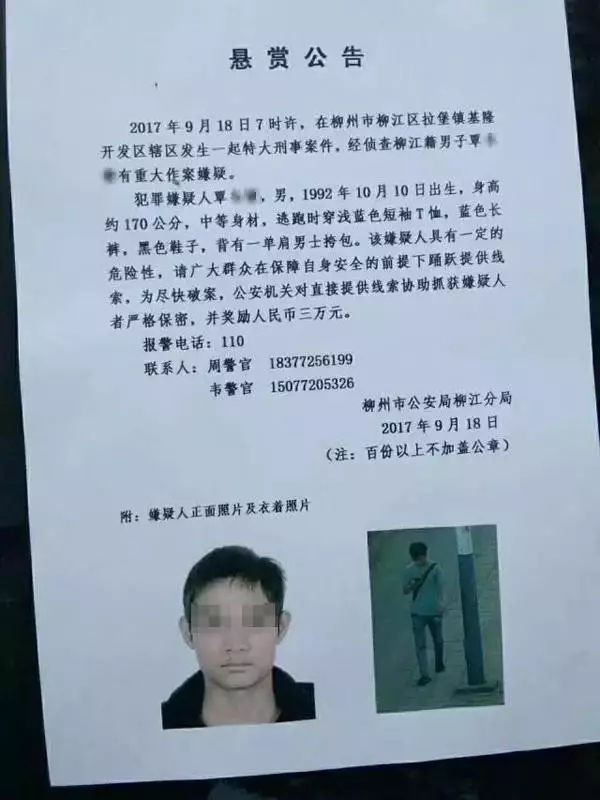 悬赏公告
2017年9月18日7时许，在柳州市柳江区拉堡镇基隆
开发区辖区发生一起特大刑事案件，经侦查柳江籍男子覃
有重大作案嫌疑。
犯罪嫌疑人覃，男，1992年10月10日出生，身高
约170公分，中等身材，逃跑时穿浅蓝色短袖T恤，蓝色长
裤，黑色鞋子，背有一单肩男士挎包。该嫌疑人具有一定的
危险性，请广大群众在保障自身安全的前提下踊跃提供线
索，为尽快破案，公安机关对直接提供线索协助抓获嫌疑人
者严格保密，并奖励人民币三万元。
报警电话：110
联系人：周警官 18377256199
韦警官 15077205326
柳州市公安局柳江分局
2017年9月18日
（注：百份以上不加盖公章）
附：嫌疑人正面照片及衣着照片